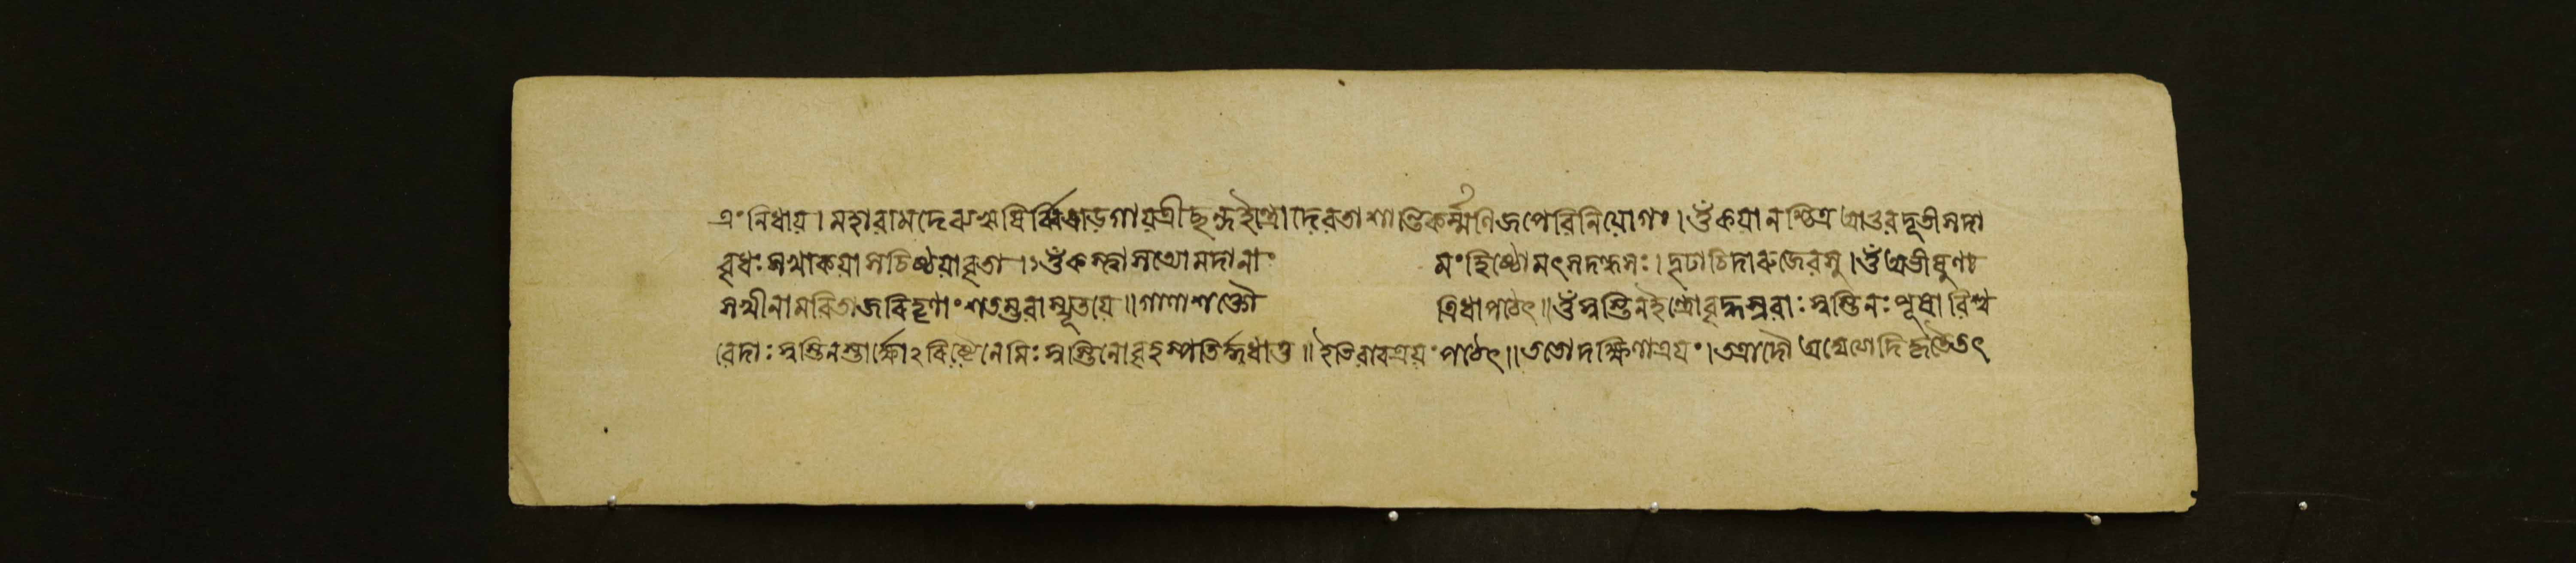 ত্রং নিধায়। মহাবামদেব্যঋষির্ব্বিরাড়্গায়ত্রীছন্দইন্দ্রোদেবতা শান্তিকর্ম্মণি জপে বিনিয়োগঃ। ওঁ কয়ানশ্চিত্র আভুব দূতী সদা
বৃধঃ সখা কয়া সচিষ্ঠয়া বৃতা।১ ওঁ কস্ত্বা সত্যো মদানাং মংহিষ্ঠো মৎসদন্ধসঃ। দৃঢ়াচিদারুজেবসু। ওঁ অভীষুণঃ
সখীনামবিতা জরিতৄণাং শতম্ভবাস্যূতয়ে॥ গানাশক্তৌ ত্রিধা পঠেৎ॥ ওঁ স্বস্তিনইন্দ্রো বৃদ্ধশ্রবাঃ স্বস্তিনঃ পূষা বিশ্ব
বেদাঃ স্বস্তিনস্তার্ক্ষ্যোঽরিষ্টনেমিঃ স্বস্তিনো বৃহস্পতির্দ্দধাতু॥ ইতি বারত্রয়ং পঠেৎ॥ ততো দক্ষিণাত্রয়ং। তত্রাদৌ